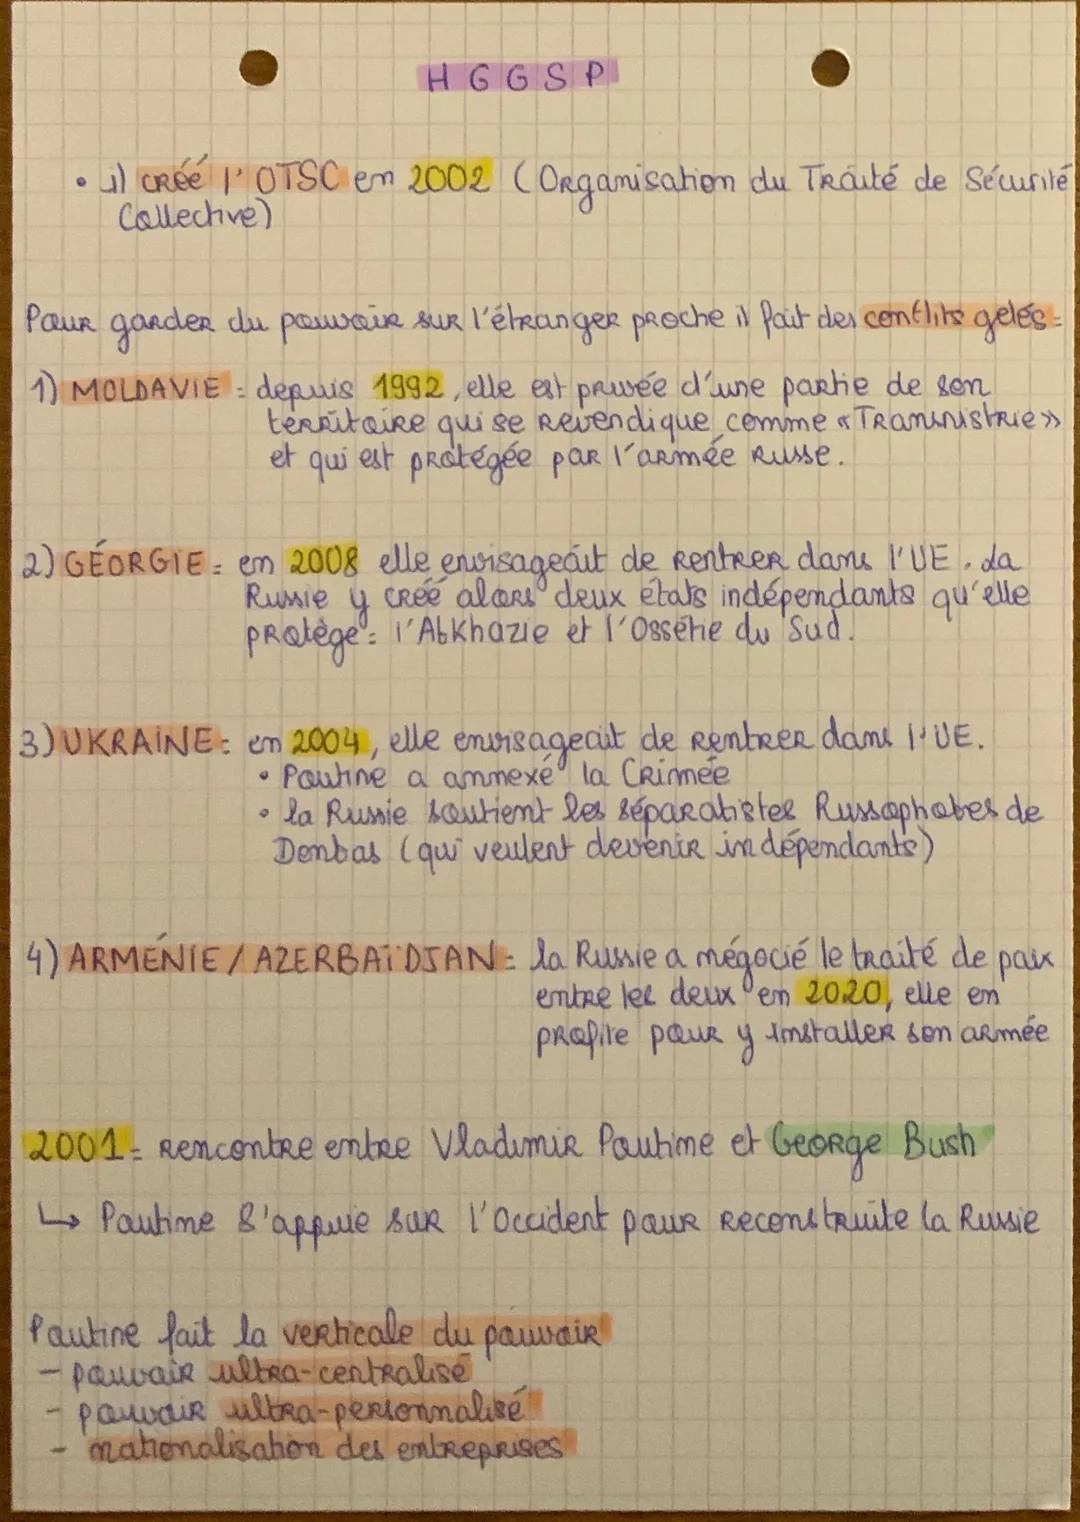 HGGSP
• il créé l'OTSC en 2002 (Organisation du Traité de Sécurité
Collective)
Pour garder du pouvoir sur l'étranger proche il fait des conflits gelés :
1) MOLDAVIE : depuis 1992, elle est privée d'une partie de son
territoire qui se revendique comme «Transnistrie»
et qui est protégée par l'armée russe.
2) GÉORGIE : en 2008 elle envisageait de rentrer dans l'UE. La
Russie y créé alors deux états indépendants qu'elle
protège : l'Abkhazie et l'Ossétie du Sud.
3) UKRAINE : en 2004, elle envisageait de rentrer dans l'UE.
• Poutine a annexé la Crimée
• la Russie soutient les séparatistes Russophobes de
Donbas (qui veulent devenir indépendants)
4) ARMÉNIE / AZERBAÏDJAN : la Russie a négocié le traité de paix
entre les deux en 2020, elle en
profite pour y installer son armée
2001 : rencontre entre Vladimir Poutine et George Bush
↳ Poutine s'appuie sur l'Occident pour reconstruite la Russie
Poutine fait la verticale du pouvoir
- pouvoir ultra-centralisé
- pouvoir ultra-personnalisé
- nationalisation des entreprises